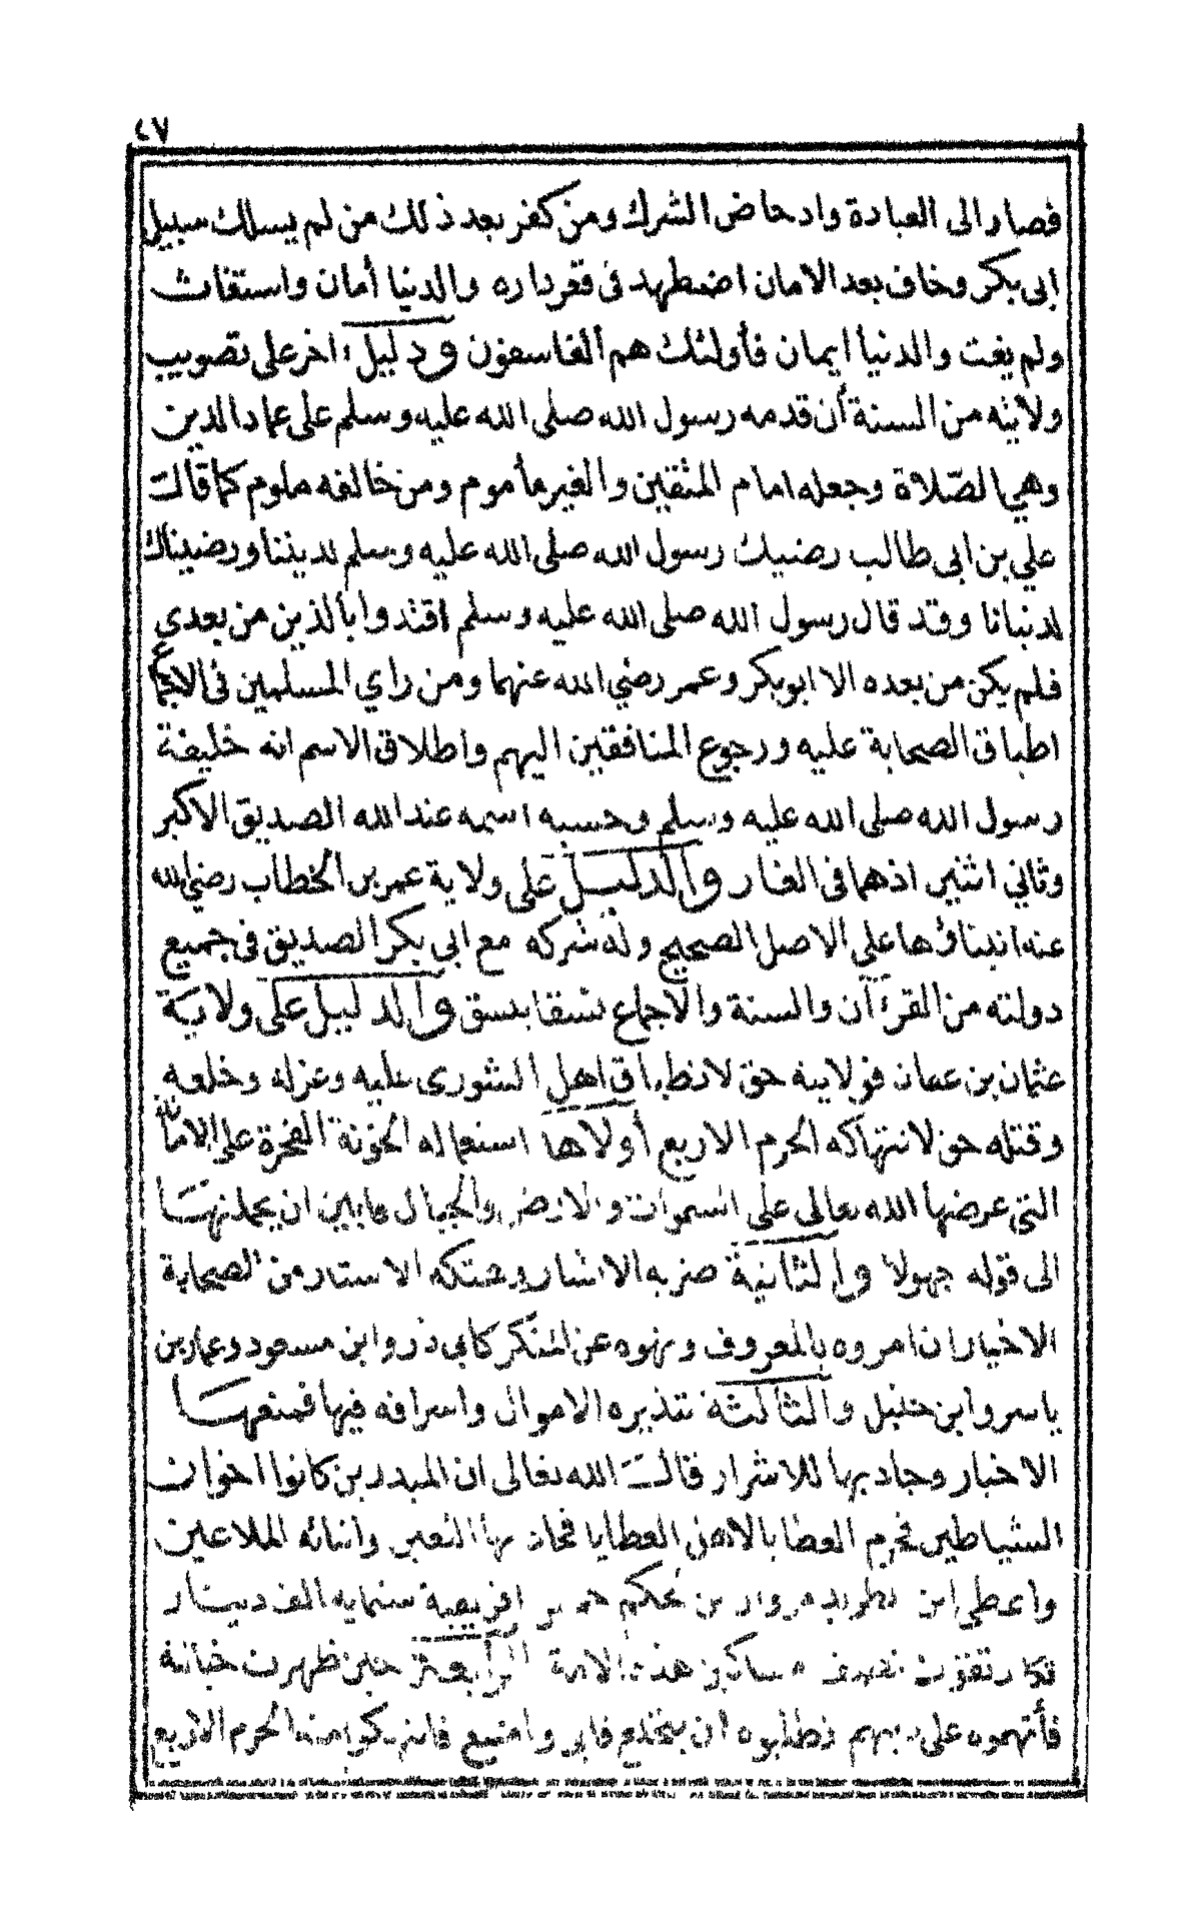 ٤٧
فصار الى العبادة وادحاض الشرك ومن كفر بعد ذلك من لم يسلك سبيل
ابى بكر وخاف بعد الامان اضطهد فى قعر داره والدنيا أمان واستغاث
ولم يغث والدنيا ايمان فأولئك هم الفاسقون ودليل اخر على تصويب
ولايته من السنة أن قدمه رسول الله صلى الله عليه وسلم على عماد الدين
وهي الصّلاة وجعله امام المتقين والغير مأموم ومن خالفه ملوم كما قال
علي بن ابى طالب رضيك رسول الله صلى الله عليه وسلم لديننا ورضيناك
لدنيانا وقد قال رسول الله صلى الله عليه وسلم اقتدوا بالذين من بعدي
فلم يكن من بعده الا ابو بكر وعمر رضي الله عنهما ومن راي المسلمين فى الاجماع
اطباق الصحابة عليه ورجوع المنافقين اليهم واطلاق الاسم انه خليفة
رسول الله صلى الله عليه وسلم وحسبه اسمه عند الله الصديق الاكبر
وثاني اثنين اذهما فى الغار والدليل على ولاية عمر بن الخطاب رضي الله
عنه انبناؤها على الاصل الصحيح وله شركه مع ابى بكر الصديق فى جميع
دولته من القرءآن والسنة والاجماع نسقا بنسق والدليل على ولاية
عثمان بن عفان فولايته حق لانطباق اهل الشورى عليه وعزله وخلعه
وقتله حق لانتهاكه الحرم الاربع أولاها استعماله الخونة الفجرة على الامانة
التى عرضها الله تعالى على السموات والارض والجبال فابين ان يحملنها
الى قوله جهولا والثانية ضربه الابشار وهتكه الاستار من الصحابة
الاخيار ان امروه بالمعروف ونهوه عن المنكر كابي ذر وابن مسعود وعمار بن
ياسر وابن حنبل والثالثة تبذيره الاموال واسرافه فيها فمنعها
الاخيار وجاد بها للاشرار قال الله تعالى ان المبذرين كانوا اخوان
الشياطين فحرم العطايا لاهل العطايا فجاد بها وأبنائه الملاعين
واعطى ابن مروان بن افريقية ستمايه الف دينار
هذه الامة الرابعة حين ظهرت خيانة
فأتهموه على وطلبوه ان ينخلع فابى وامتنع الحرم الاربع